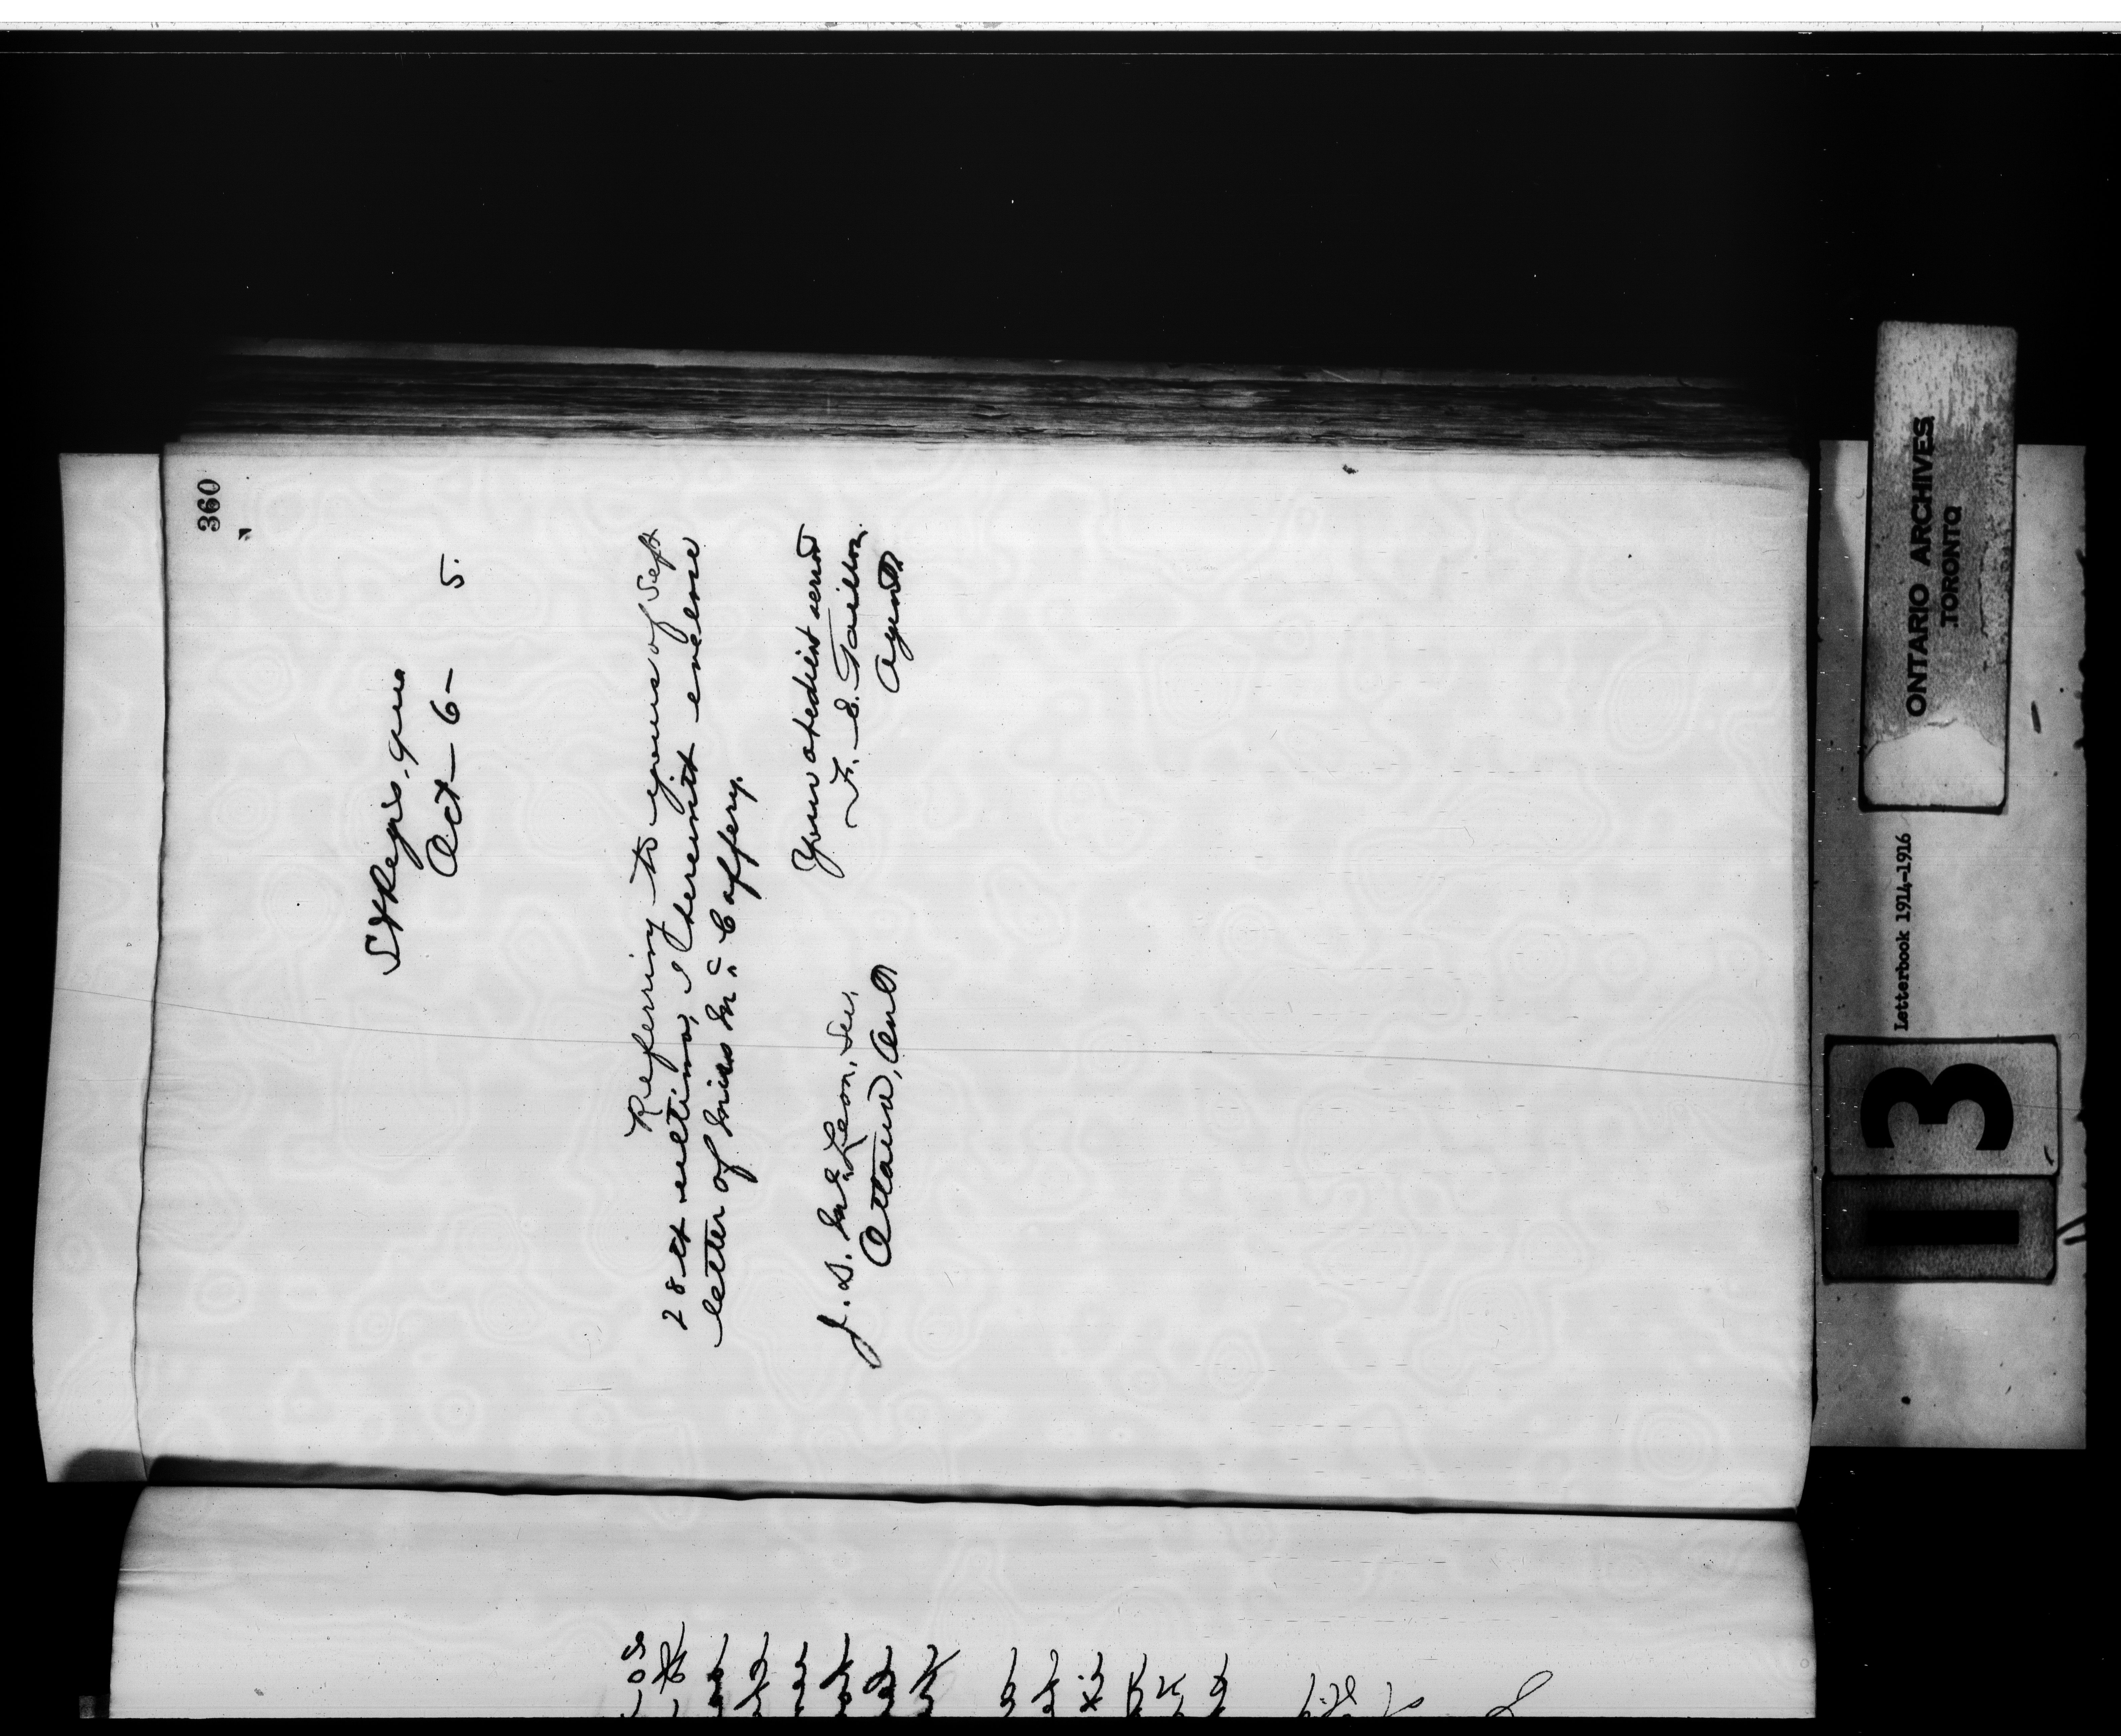 360
St Regis, Que
Oct - 6 - 5.
Referring to yours of Sept
28th ultimo, I herewith enclose
letter of Miss Mc Caffery.
Your obedient servt
F. E. Taillon.
Agent
J. D. McLean, Sec.
Ottawa, Ont
ONTARIO ARCHIVES
TORONTO
Letterbook 1914-1916
13